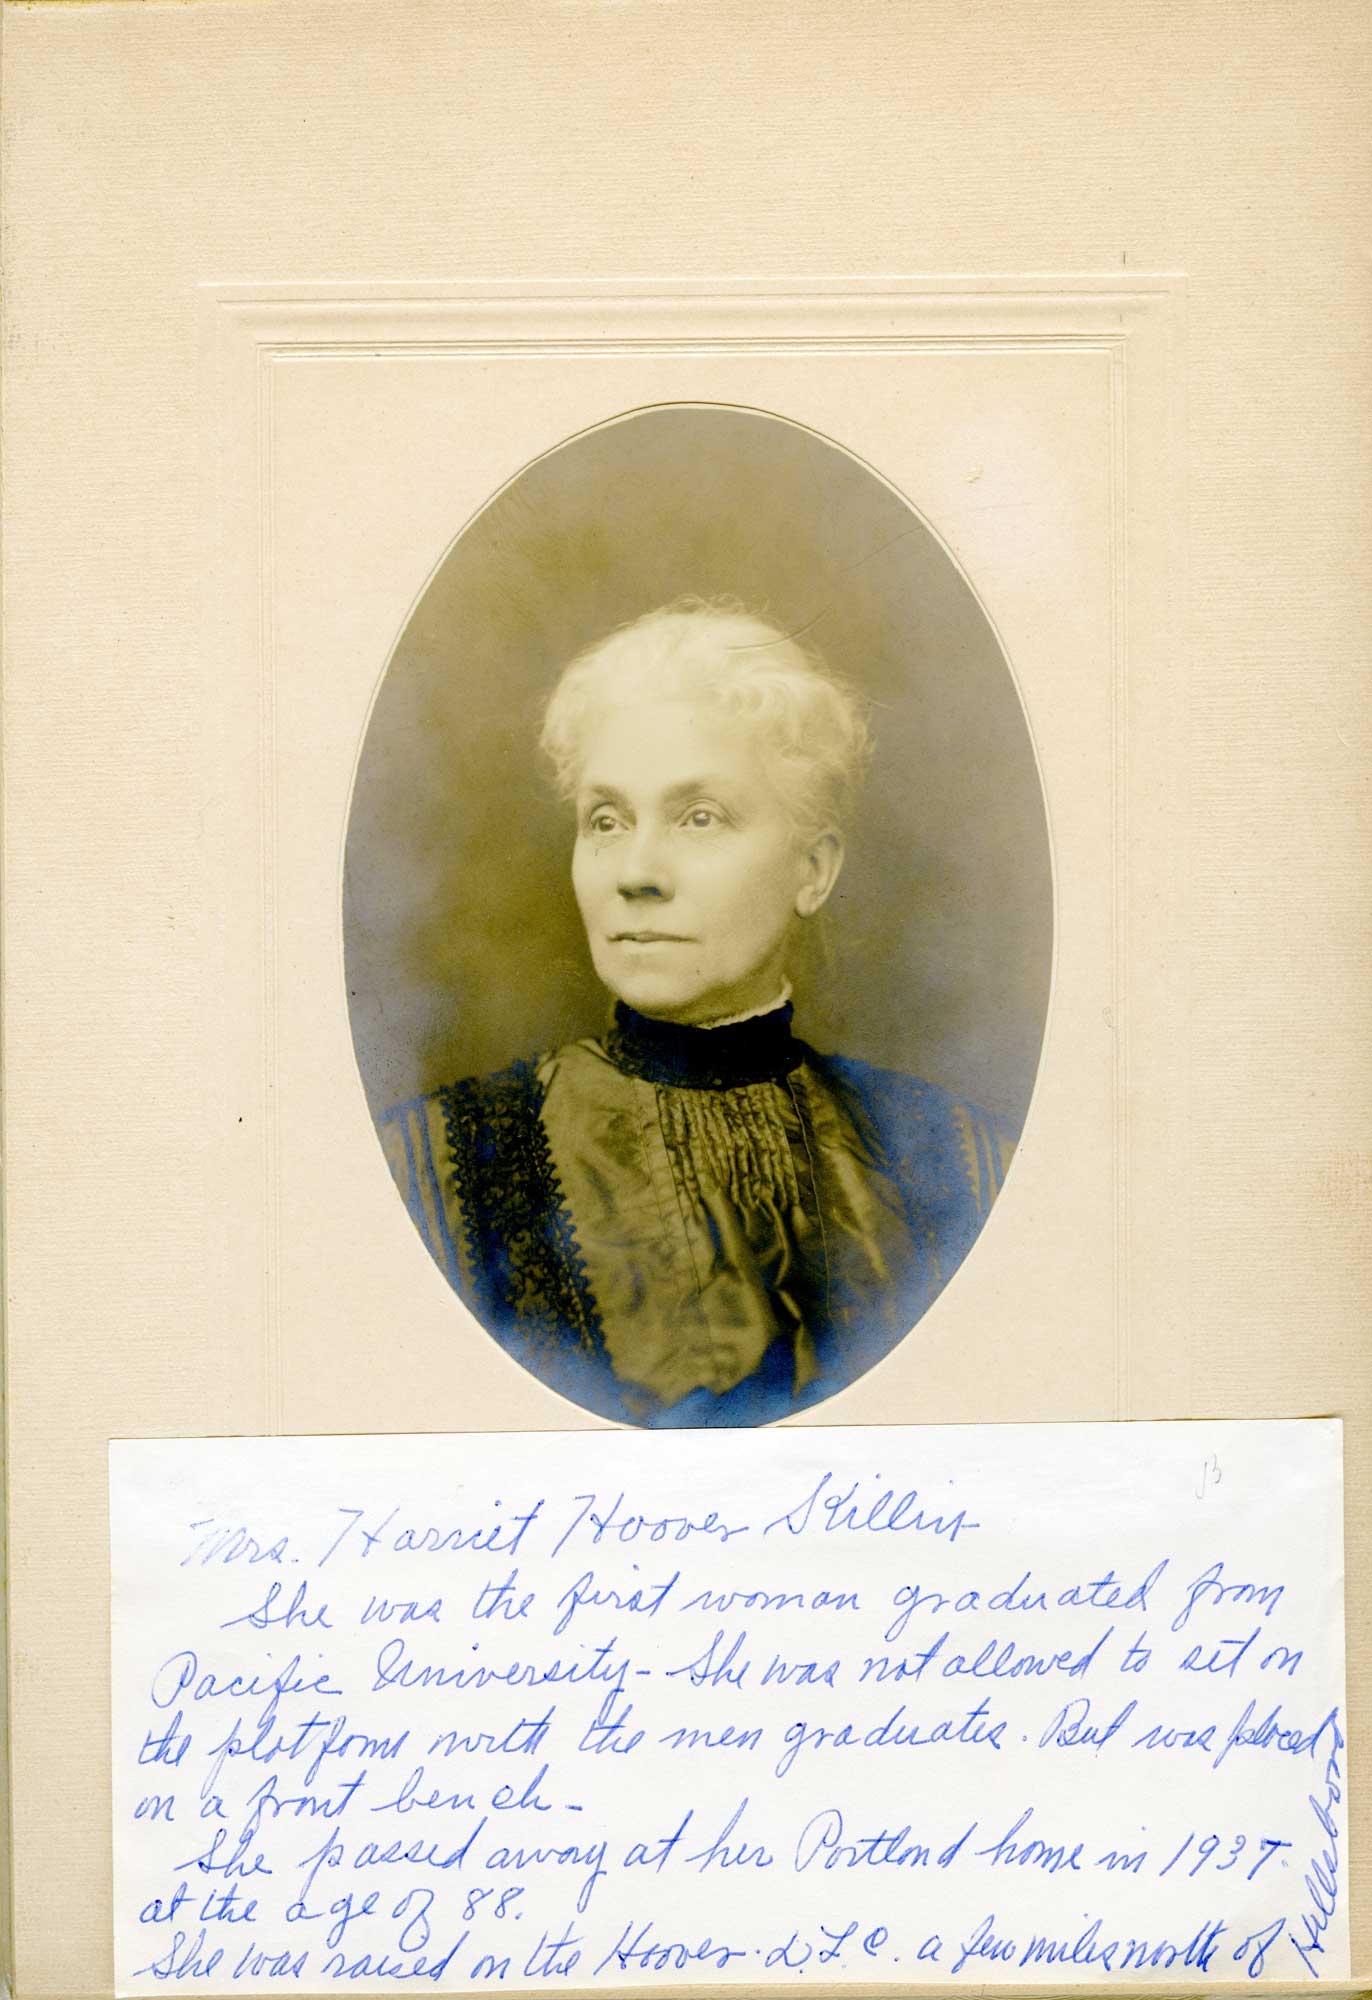 Mrs. Harriet Hoover Killin
She was the first woman graduated from
Pacific University - She was not allowed to set on
the platform with the men graduates. But was placed
on a front bench -
She passed away at her Portland home in 1937.
at the age of 88.
She was raised on the Hoover. D.L.C. a few miles north of
Hillsboro